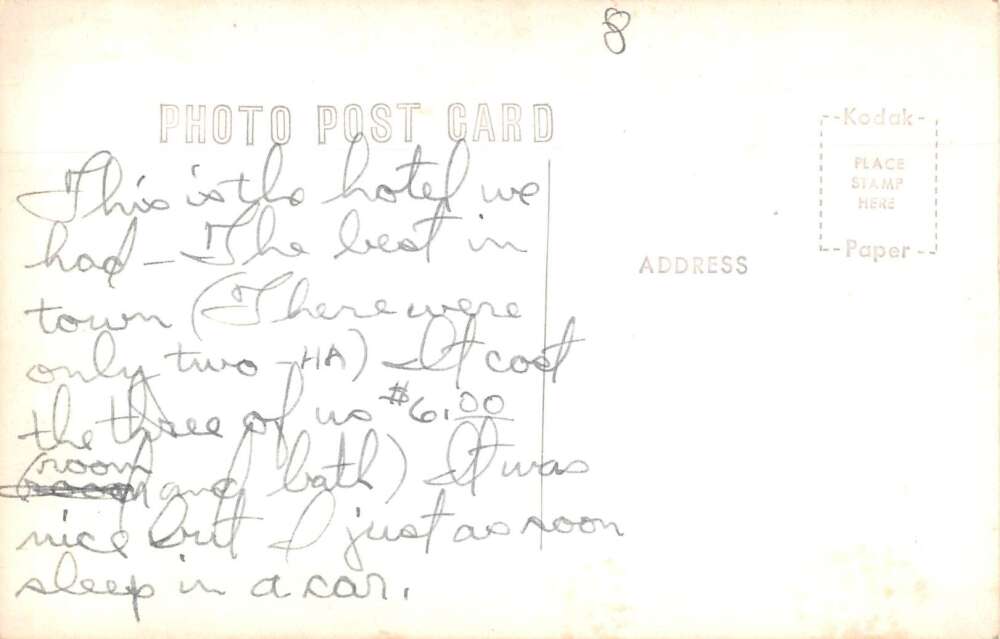 8
PHOTO POST CARD
This is the hotel we
had - The best in
town (There were
only two - HA) It cost
the three of us $6.00
(room
and bath) It was
nice but I just as soon
sleep in a car.
ADDRESS
Kodak
PLACE
STAMP
HERE
Paper